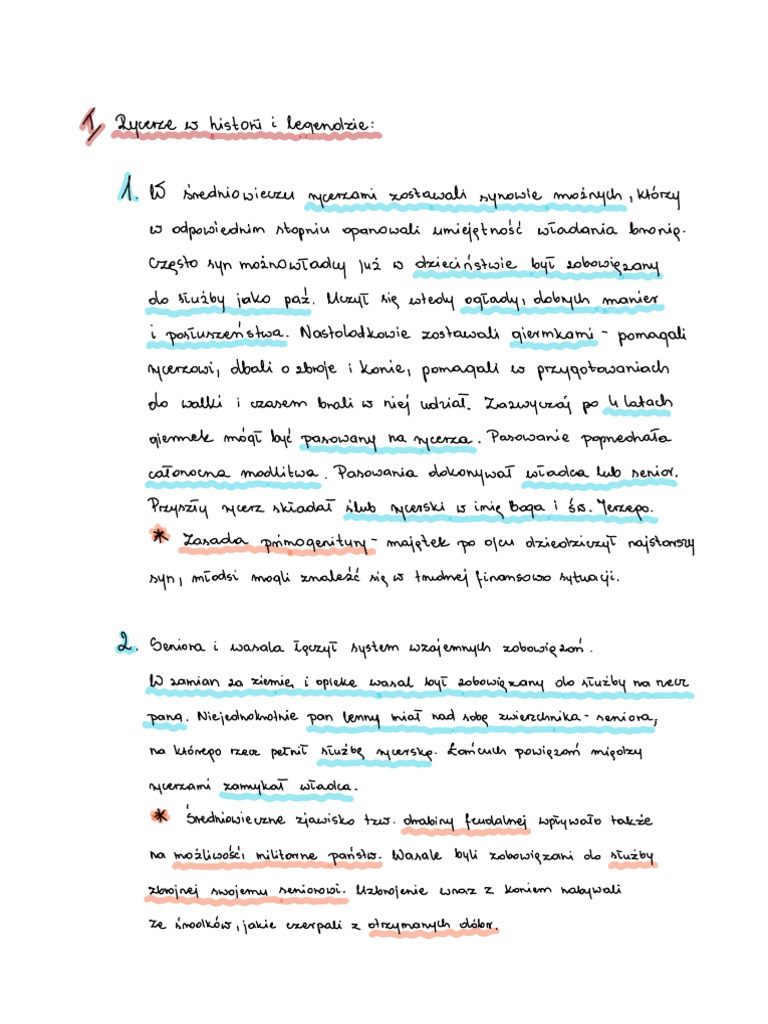 I, Rycerze w historii i legendzie:
1. W średniowieczu rycerzami zostawali synowie możnych, którzy
w odpowiednim stopniu opanowali umiejętność władania bronią.
Często syn możnowładcy już w dzieciństwie był zobowiązany
do służby jako paź. Uczył się wtedy ogłady, dobrych manier
i posłuszeństwa. Nastolatkowie zostawali giermkami - pomagali
rycerzowi, dbali o zbroje i konie, pomagali w przygotowaniach
do walki i czasem brali w niej udział. Zazwyczaj po 4 latach
giermek mógł być pasowany na rycerza. Pasowanie poprzedzała
całonocna modlitwa. Pasowania dokonywał władca lub senior.
Przyszły rycerz składał ślub rycerski w imię Boga i św. Jerzego.
* Zasada primogenitury - majątek po ojcu dziedziczył najstarszy
syn, młodsi mogli znaleźć się w trudnej finansowo sytuacji.
2. Seniora i wasala łączył system wzajemnych zobowiązań.
W zamian za ziemię i opiekę wasal był zobowiązany do służby na rzecz
pana. Niejednokrotnie pan lenny miał nad sobą zwierzchnika - seniora,
na którego rzecz pełnił służbę rycerską. Łańcuch powiązań między
rycerzami zamykał władca.
* Średniowieczne zjawisko tzw. drabiny feudalnej wpływało także
na możliwości militarne państw. Wasale byli zobowiązani do służby
zbrojnej swojemu seniorowi. Uzbrojenie wraz z koniem nabywali
ze środków, jakie czerpali z otrzymanych dóbr.